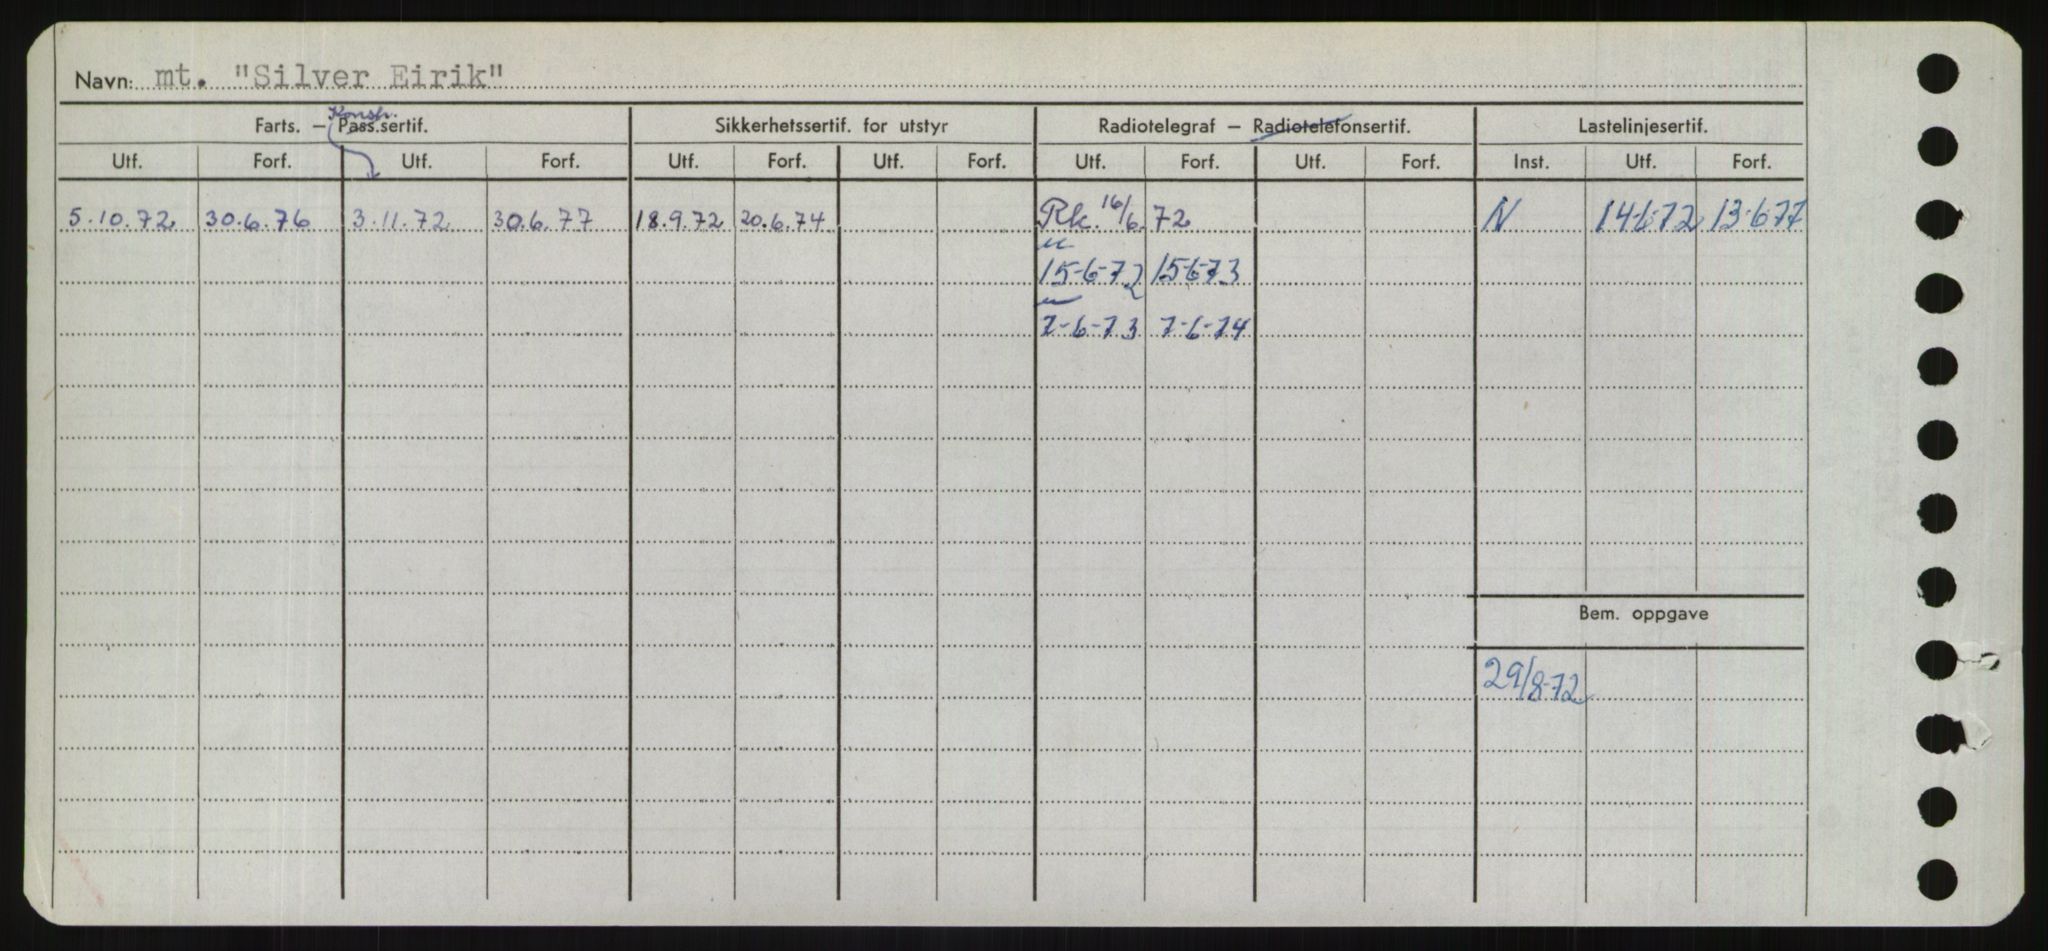 Navn: mt. "Silver Eirik"
Konstr.
Farts. – Pass.sertif. Sikkerhetssertif. for utstyr Radiotelegraf – Radiotelefonsertif. Lastelinjesertif.
Utf. Forf. Utf. Forf. Utf. Forf. Utf. Forf. Utf. Forf. Utf. Forf. Inst. Utf. Forf.
5.10.72 30.6.76 3.11.72 30.6.77 18.9.72 20.6.74 Rk. 16/6.72 N 14-6-72 13-6-77
15-6-72 15-6-73
7-6-73 7-6-74
Bem. oppgave
29/8-72